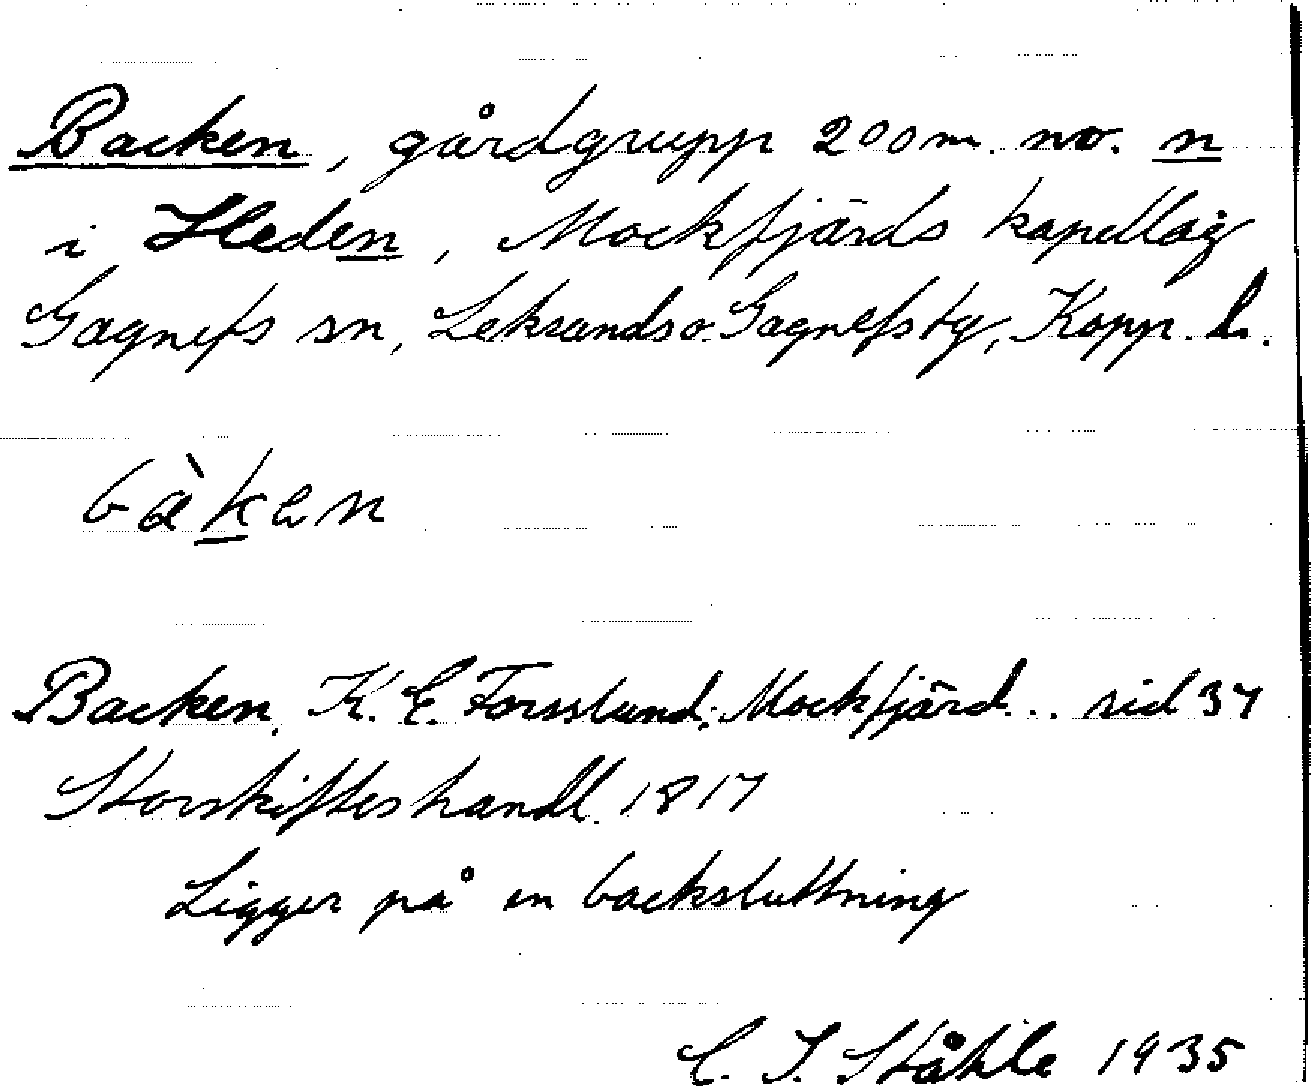 Backen, gårdgrupp 200 m. no. n
i Heden, Mockfjärds kapellag
Gagnefs sn, Leksands o. Gagnefs tg, Kopp. l.
bàken
Backen, K. E. Forsslund: Mockfjärd... sid 37
Storskifteshandl. 1817
Ligger på en backsluttning
C. I. Ståhle 1935